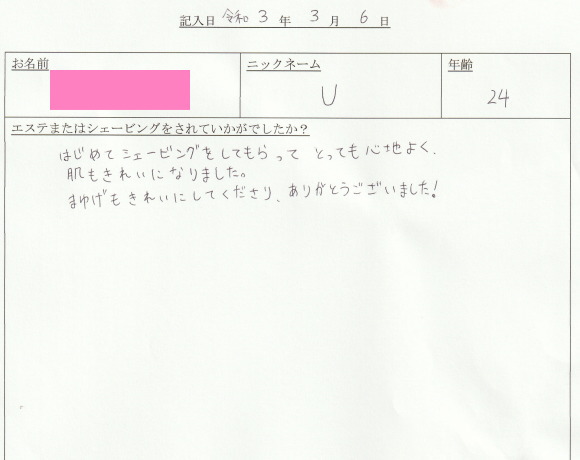 記入日 令和 3 年 3 月 6 日
お名前 ニックネーム 年齢
U 24
エステまたはシェービングをされていかがでしたか？
はじめてシェービングをしてもらって とっても心地よく、
肌もきれいになりました。
まゆげもきれいにしてくださり、ありがとうございました!